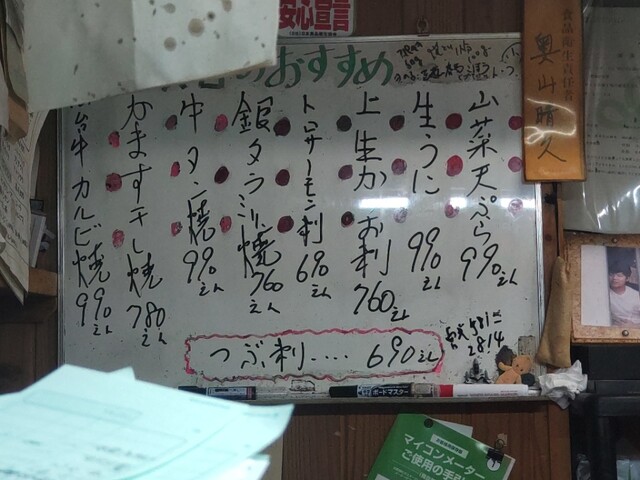 安心宣言
のおすすめ
食品衛生責任者
奥山晴久
山菜天ぷら 990えん
生うに 990えん
上生かお刺 760えん
トロサーモン刺 690えん
銀タラミリン焼 760えん
牛タン焼 990えん
かます干し焼 780えん
牛カルビ焼 990えん
つぶ刺.... 690えん
2814
ボードマスター
マイコンメーター
ご使用の手引